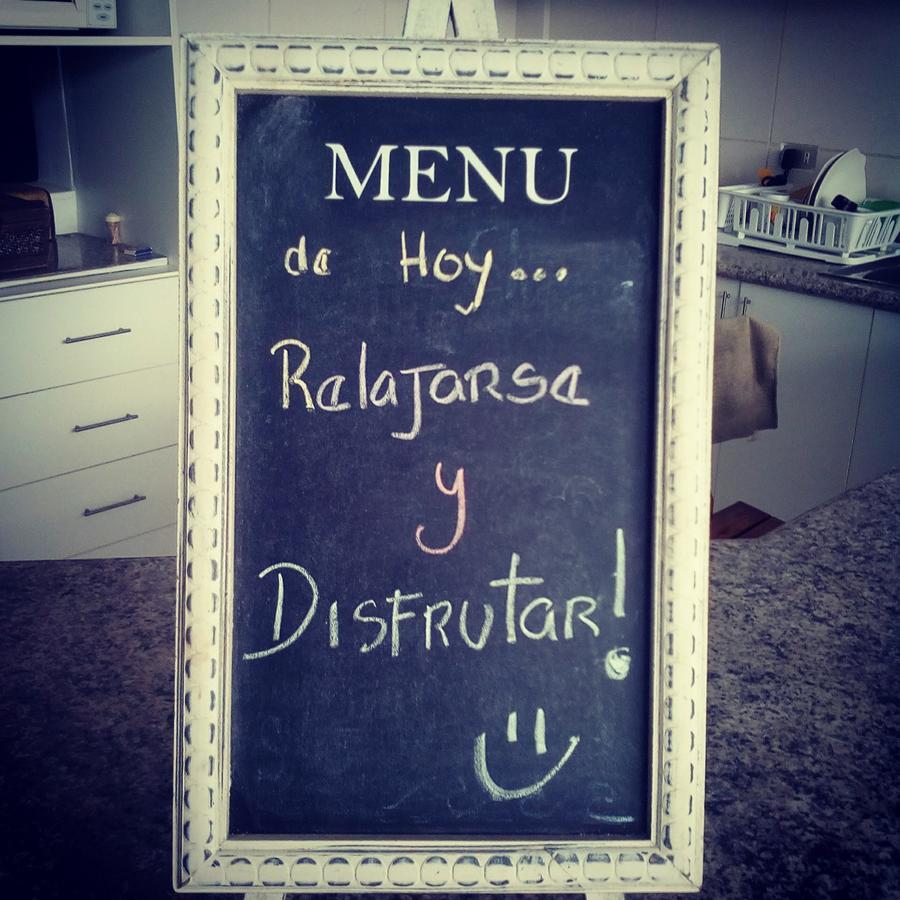 MENU
de Hoy...
Relajarse
y
Disfrutar!